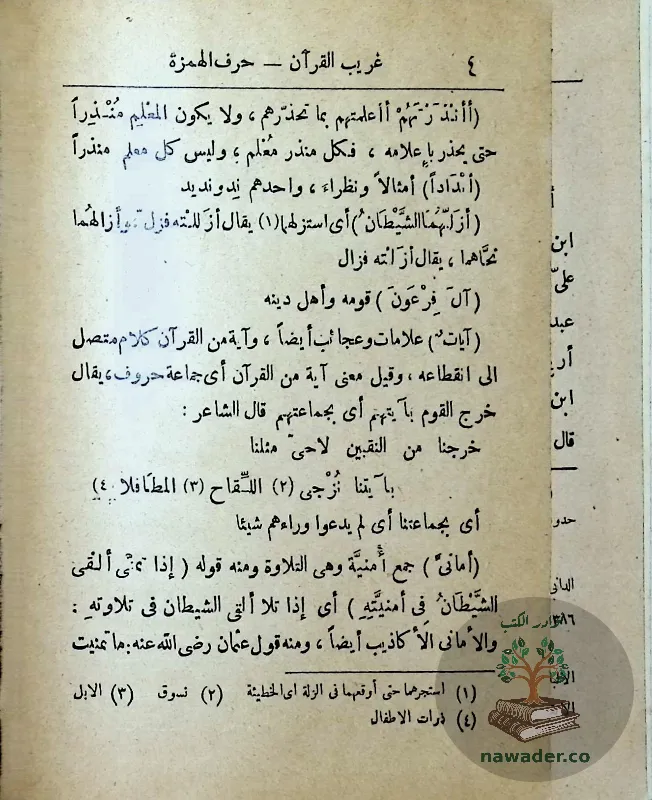 ٤ غريب القرآن — حرف الهمزة
(أأنذَرْتَهُمْ) أأعلمتهم بما تحذّرهم ، ولا يكون المعْلِم مُنْذِراً
حتى يحذر بإعلامه ، فكل منذر مُعْلم ؛ وليس كل معلم منذراً
(أنْدَاداً) أمثالاً ونظراءَ ، واحدهم نِد ونديد
(أزَلَّهُمَا الشَّيْطَانُ) أى استزلهما (١) يقال أزللته فزل ، وأزالهما
نحَّاهما ، يقال أزَلته فزال
(آلَ فِرْعَوْنَ) قومه وأهل دينه
(آيات) علامات وعجائب أيضاً ، وآية من القرآن كلام متصل
الى انقطاعه ، وقيل معنى آية من القرآن أى جماعة حروف ، يقال
خرج القوم بآيتهم أى بجماعتهم قال الشاعر :
خرجنا من النقبين لاحىّ مثلنا
بآيتنا نُزْجى (٢) اللِّقاح (٣) المطَافلا (٤)
أى بجماعتنا أى لم يدعوا وراءهم شيئا
(أمانىّ) جمع أُمنيَّة وهى التلاوة ومنه قوله (إذا تمنّى ألْقى
الشَّيْطَانُ فِى أمنيَّتِهِ) أى إذا تلا ألقى الشيطان فى تلاوتهِ .
والأمانى الأكاذيب أيضاً ، ومنه قول عثمان رضى الله عنه : ما تمنيت
(١) استجرهما حتى أوقعهما فى الزلة اى الخطيئة (٢) نسوق (٣) الابل
(٤) ذرات الاطفال
ابن
علىّ
عبد
ابن
قال
حدو
الدانى
٣٨٦
نوادر الكتب
nawader.co